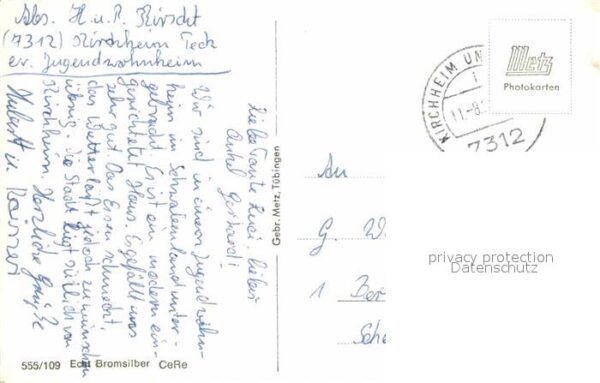 Abs. H. u. R. Kirscht
(7312) Kirchheim Teck
ev. Jugendwohnheim
Liebe Tante Luzi, lieber
Onkel Gerhard!
Wir sind in einem Jugendwohn-
heim im Schwabenland unter-
gebracht. Es ist ein modern ein-
gerichtetes Haus. Es gefällt uns
sehr gut. Das Essen schmeckt,
das Wetter läßt jedoch zu wünschen
übrig. Die Stadt liegt südlich von
Kirchheim. Herzliche Grüße
Hubert u.
Gebr. Metz, Tübingen
555/109 Echt Bromsilber CeRe
KIRCHHEIM UN
11.-8.
7312
Metz
Photokarten
An
G. W
1 Ber
Sche
privacy protection
Datenschutz